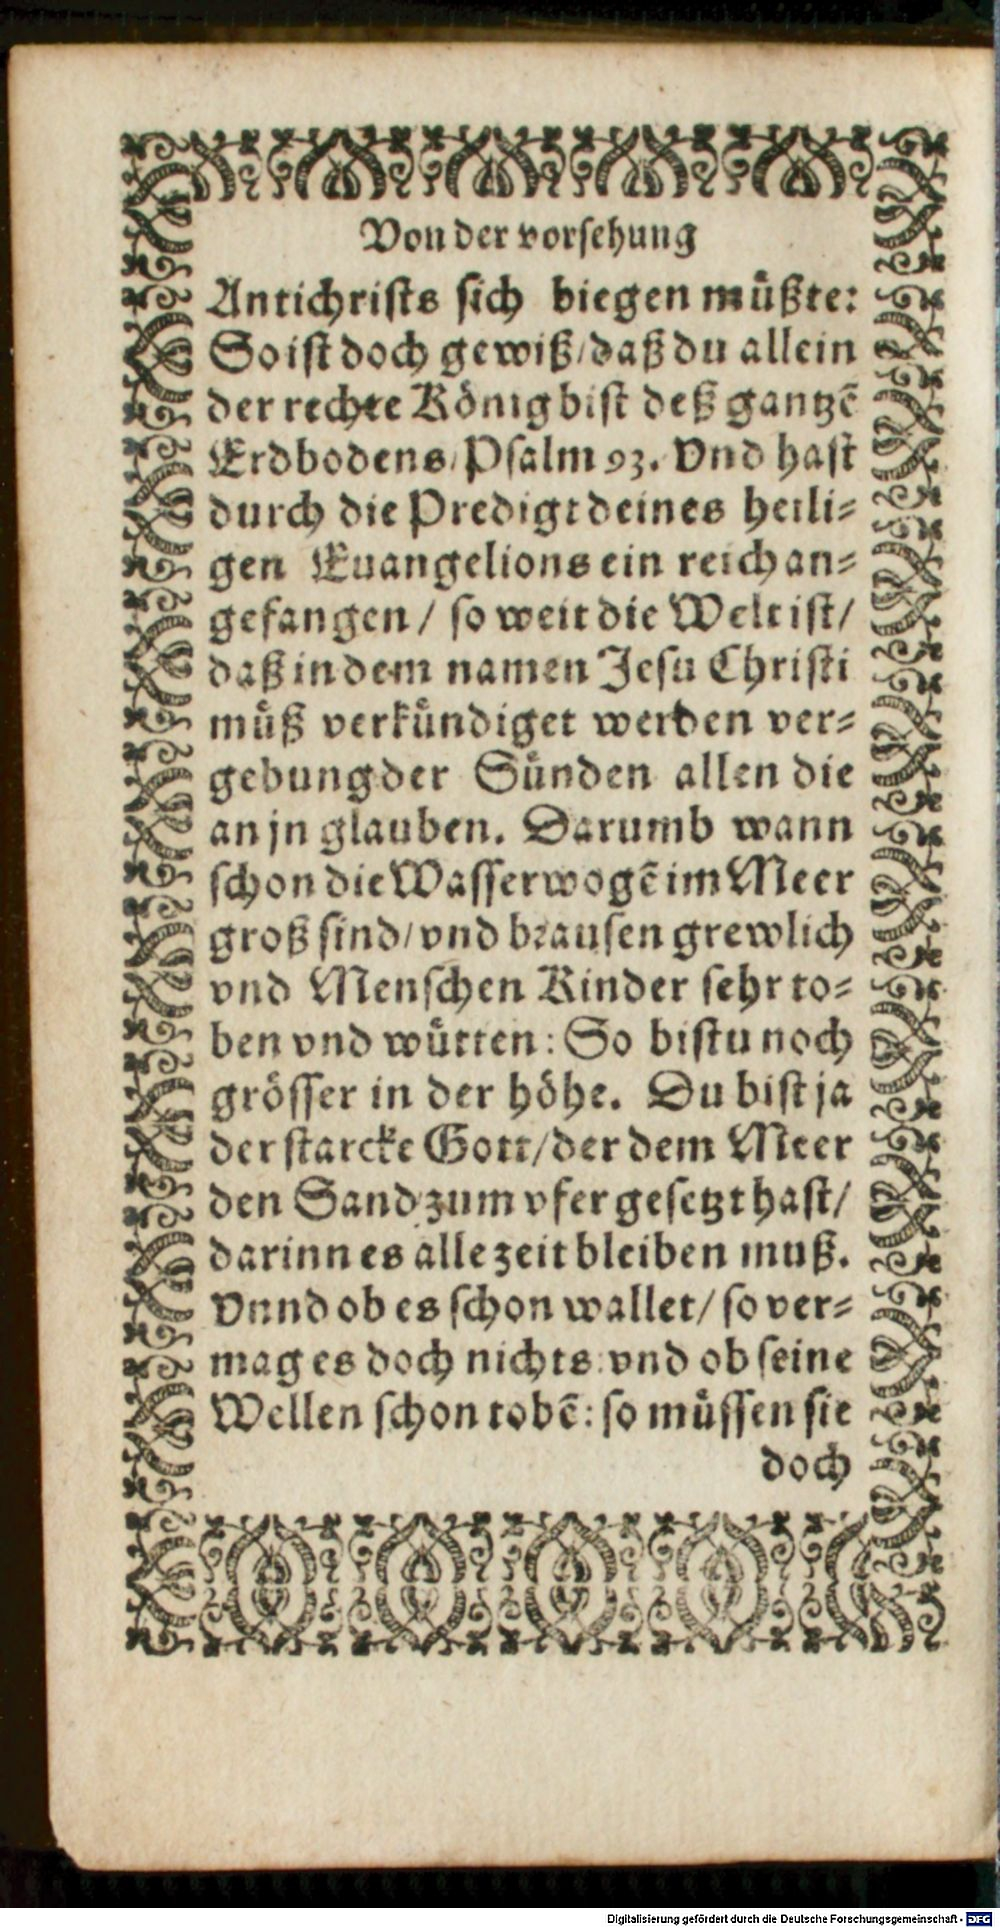 Von der vorsehung
Antichrists sich biegen müßte:
So ist doch gewiß/daß du allein
der rechte König bist deß gantzē
Erdbodens/Psalm 93. Vnd hast
durch die Predigt deines heili-
gen Euangelions ein reich an-
gefangen/ so weit die Welt ist/
daß in dem namen Jesu Christi
müß verkündiget werden ver-
gebung der Sünden allen die
an jn glauben. Darumb wann
schon die Wasserwogē im Meer
groß sind/vnd brausen grewlich
vnd Menschen Kinder sehr to-
ben vnd wütten: So bistu noch
grösser in der höhe. Du bist ja
der starcke Gott/der dem Meer
den Sand zum vfer gesetzt hast/
darinn es alle zeit bleiben muß.
Vnnd ob es schon wallet/ so ver-
mag es doch nichts: vnd ob seine
Wellen schon tobē: so müssen sie
doch
Digitalisierung gefördert durch die Deutsche Forschungsgemeinschaft - DFG